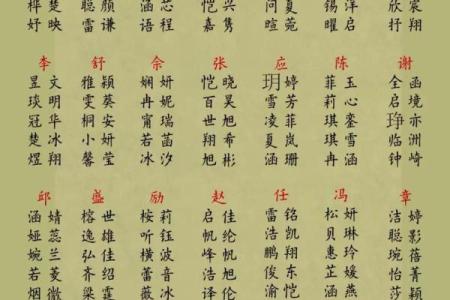 桦 楚 聪 颜 涵 芯 恺 兴 问 夏 锡 洋 欣 宸
妤 映 雷 谦 语 程 嘉 隽 暄 菀 曜 启 妤 翔
李 舒 余 张 应 陈 谢
昱 文 雅 颖 娴 妍 恺 晓 玥 婷 菲 玉 全 函
琰 明 雯 葵 冉 妮 百 昊 雪 芳 莉 心 启 境
冠 华 桐 安 甯 瑞 世 旭 凌 菲 琪 銮 琤 亦
楚 冰 小 妍 若 菡 翔 希 夏 岚 琪 雪 临 洲
煜 翔 馨 莹 冰 汐 旭 彬 涵 珊 冉 涵 钟 崎
邱 盛 励 赵 任 冯 章
涵 婧 榕 世 桉 莉 启 佳 雷 铭 松 妍 洁 婷
娅 蕊 逸 雄 听 钰 帆 纶 浩 凯 贝 琳 聪 影
婉 兰 弘 佳 横 波 峰 帆 鹏 翔 惠 玲 琬 蓓
若 蔓 齐 绍 蕾 音 逸 旭 俊 东 芷 媛 怡 菁
烟 微 梁 霆 薇 冰 伦 渝 恺 涵 燕 莎 颖